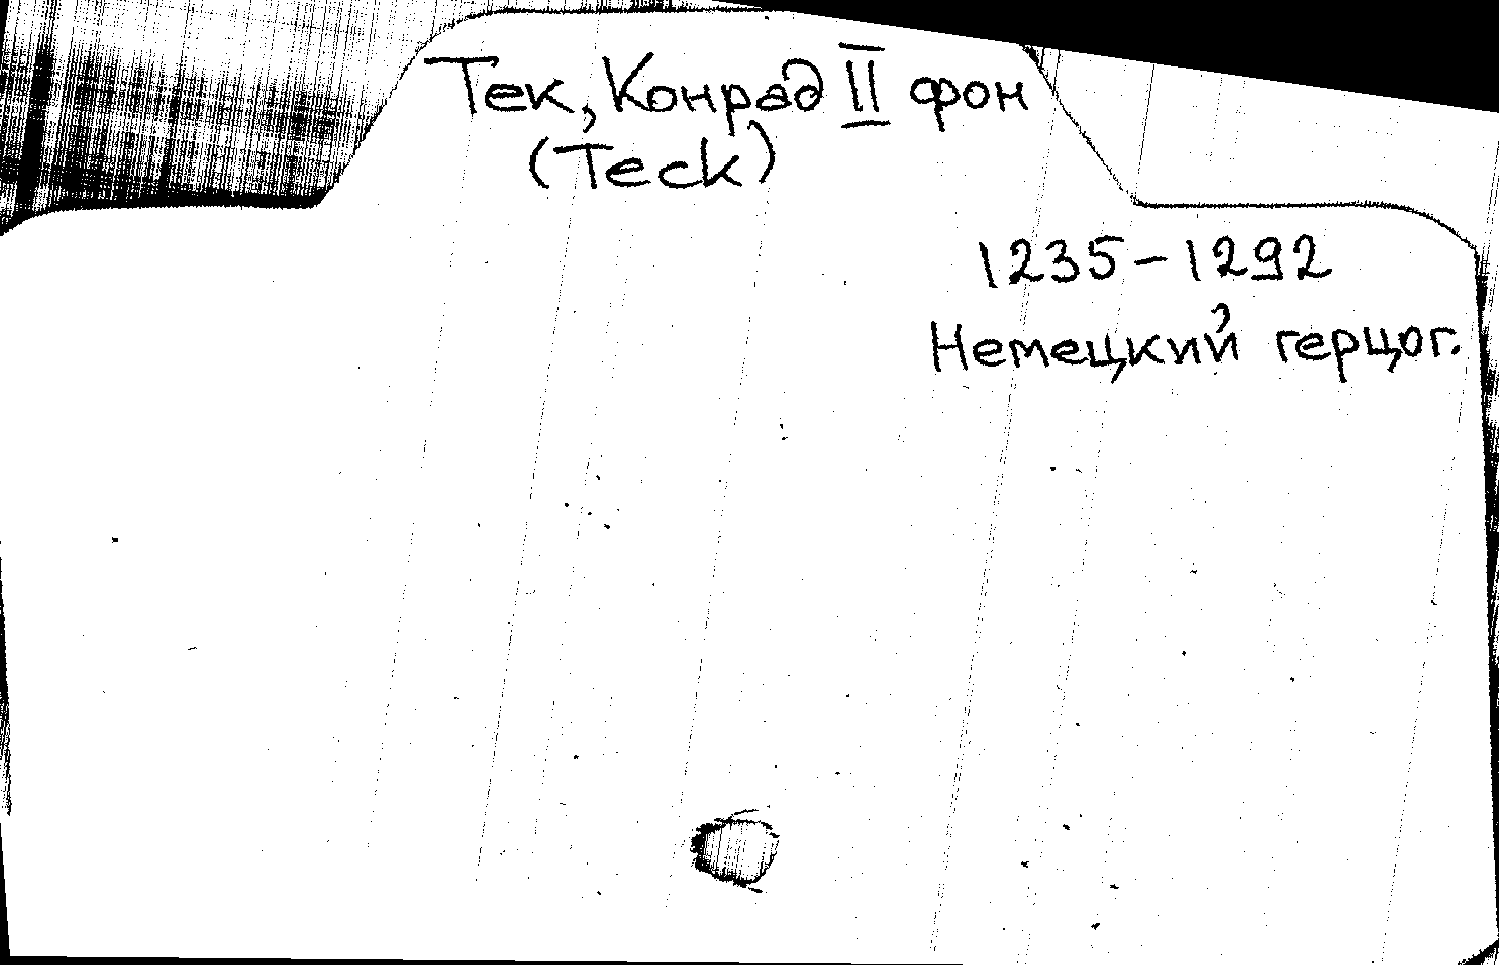 Тек, Конрад II фон
(Teck)
1235-1292
Немецкий герцог.